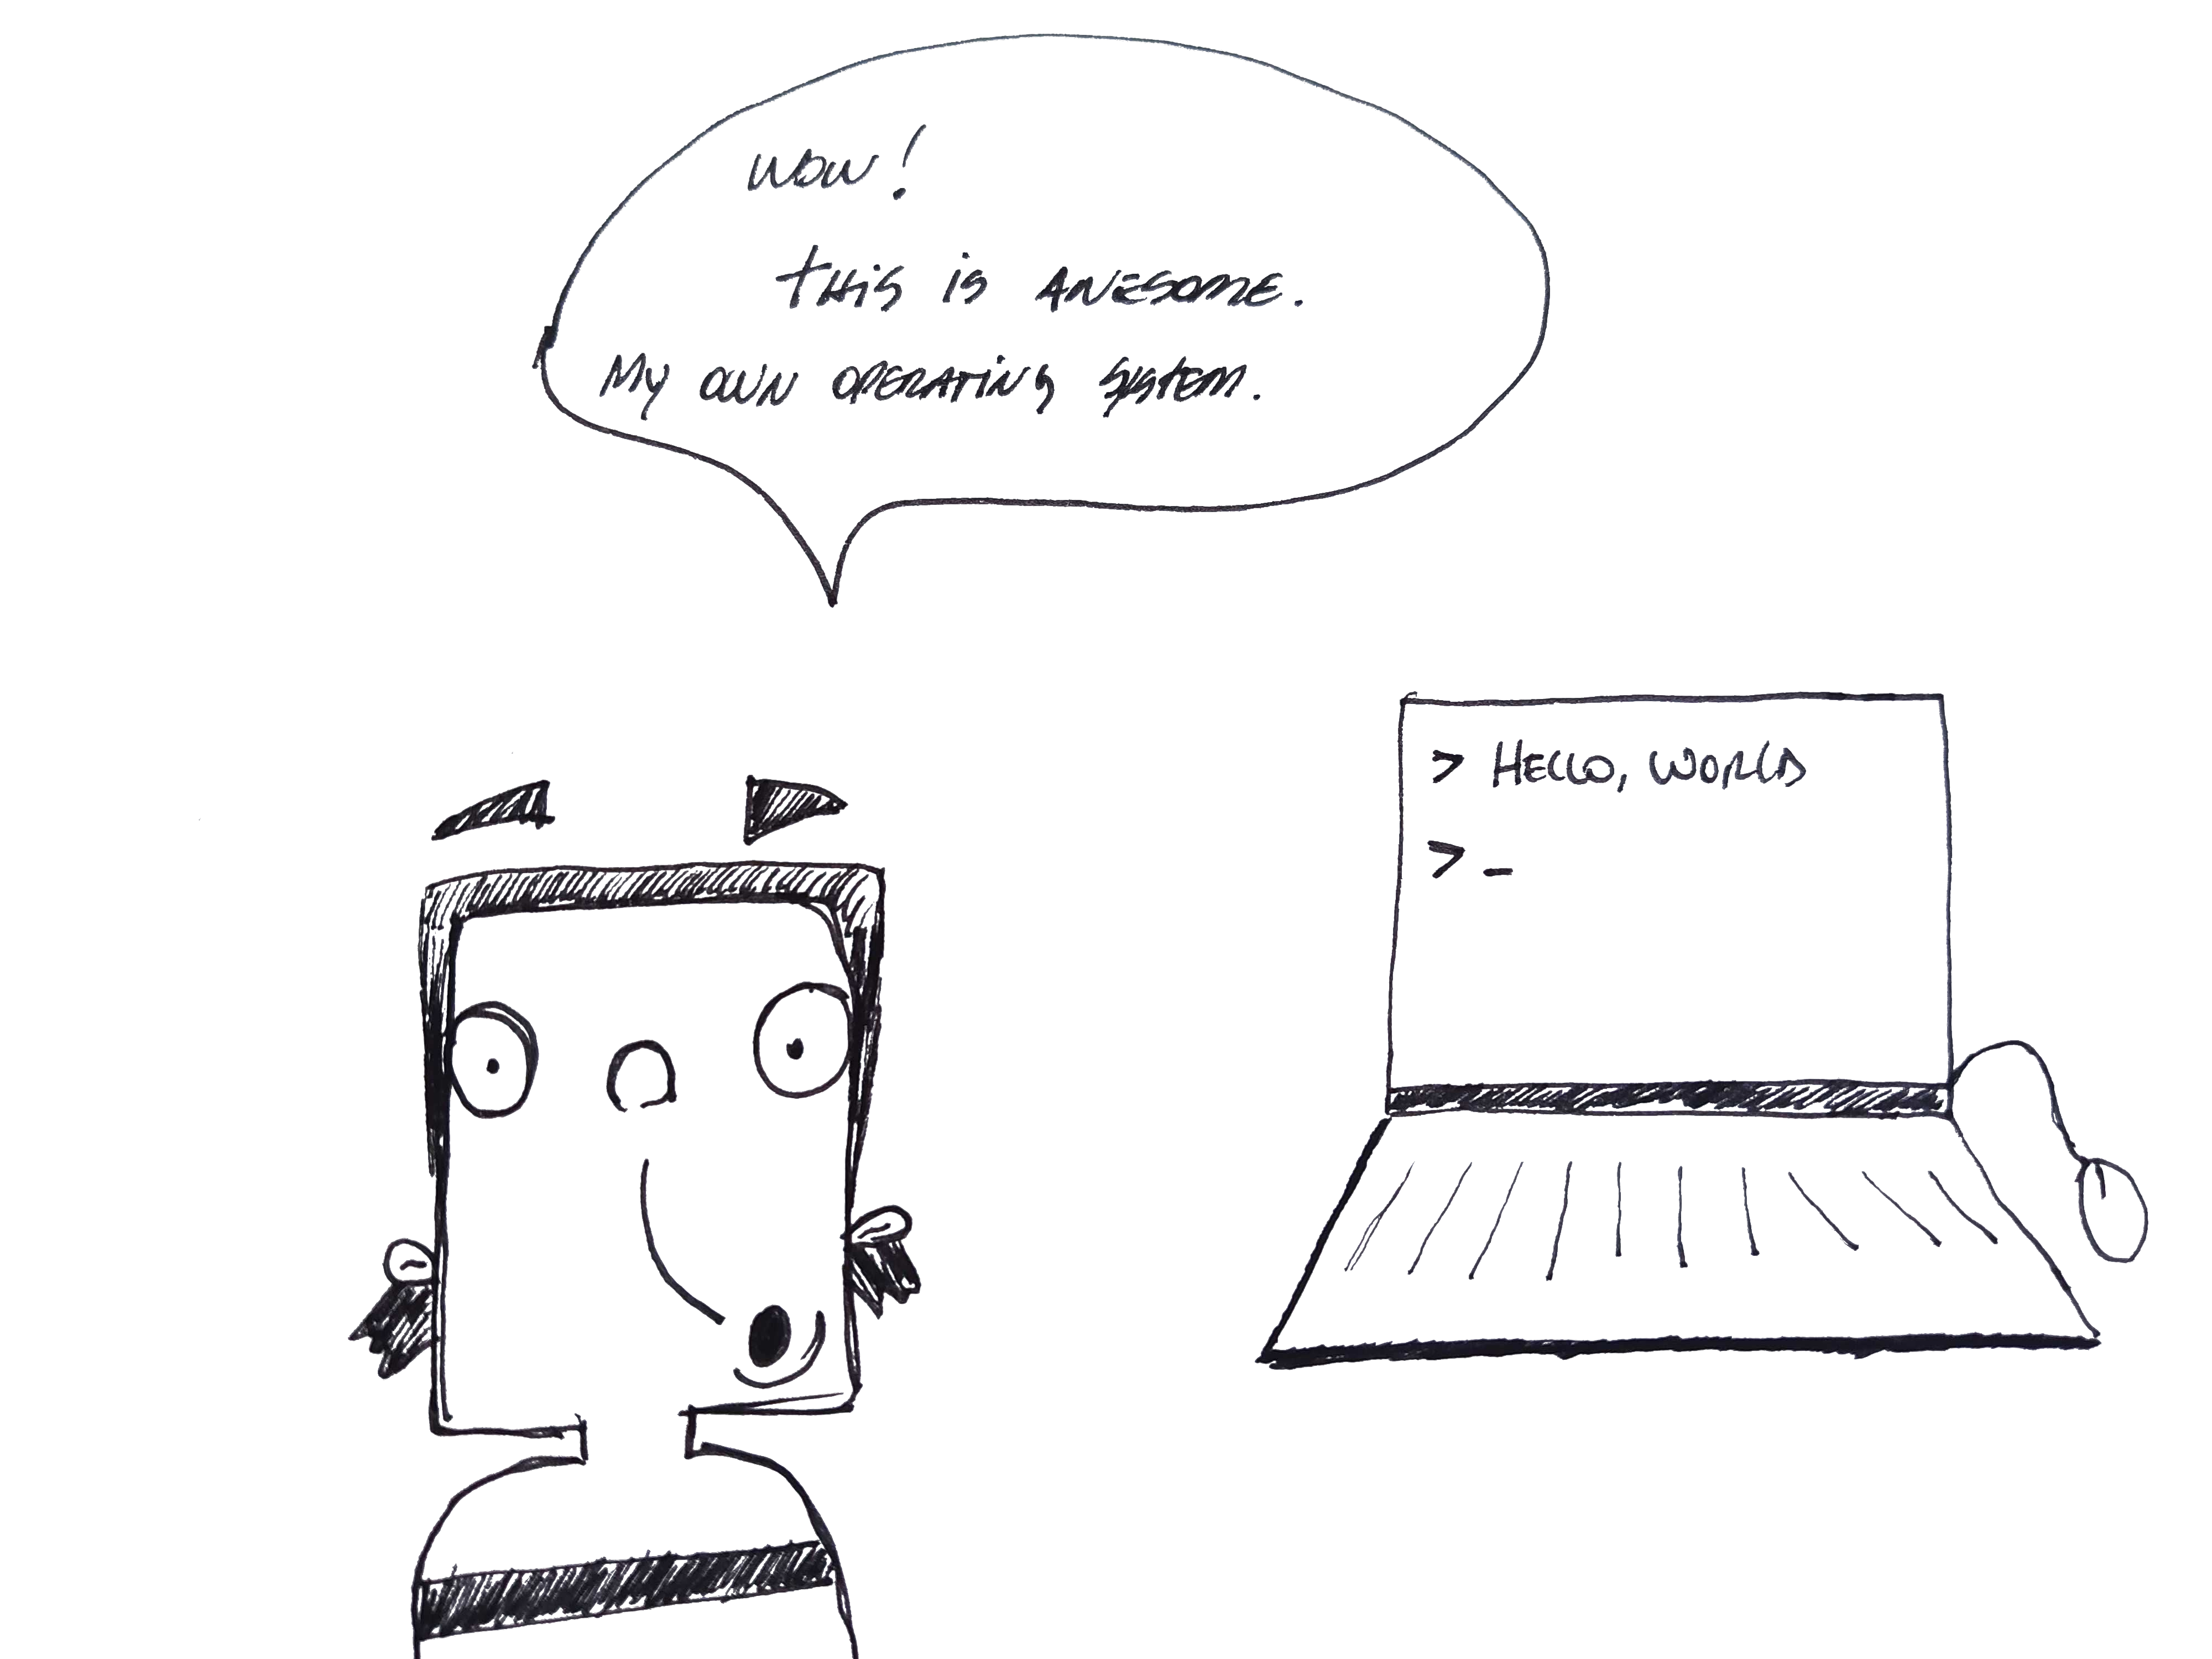 WOW!
THIS IS AWESOME.
MY OWN OPERATING SYSTEM.
> HELLO, WORLD
> _